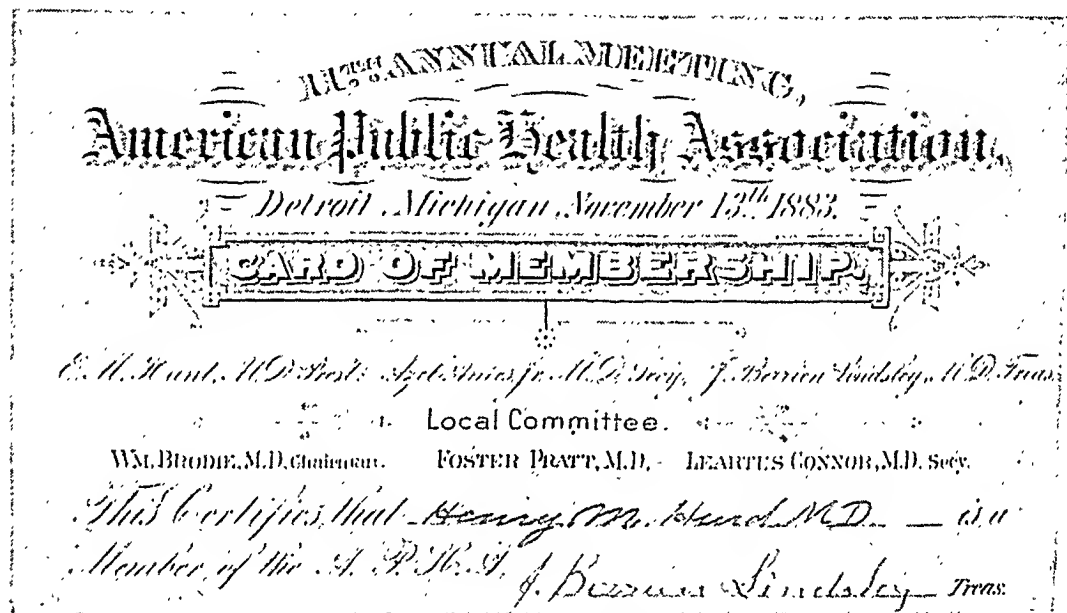 11TH ANNUAL MEETING,
American Public Health Association,
Detroit, Michigan, November 13th 1883.
CARD OF MEMBERSHIP.
E. M. Hunt, M.D. Prest. Azel Ames, Jr. M.D. Secy. J. Berrien Lindsley, M.D. Treas.
Local Committee.
WM. BRODIE, M.D. Chairman. FOSTER PRATT, M.D. - LEARTUS CONNOR, M.D. Secy.
This Certifies that Henry M. Hurd M.D. is a
Member of the A. P. H. A. J. Berrien Lindsley Treas.